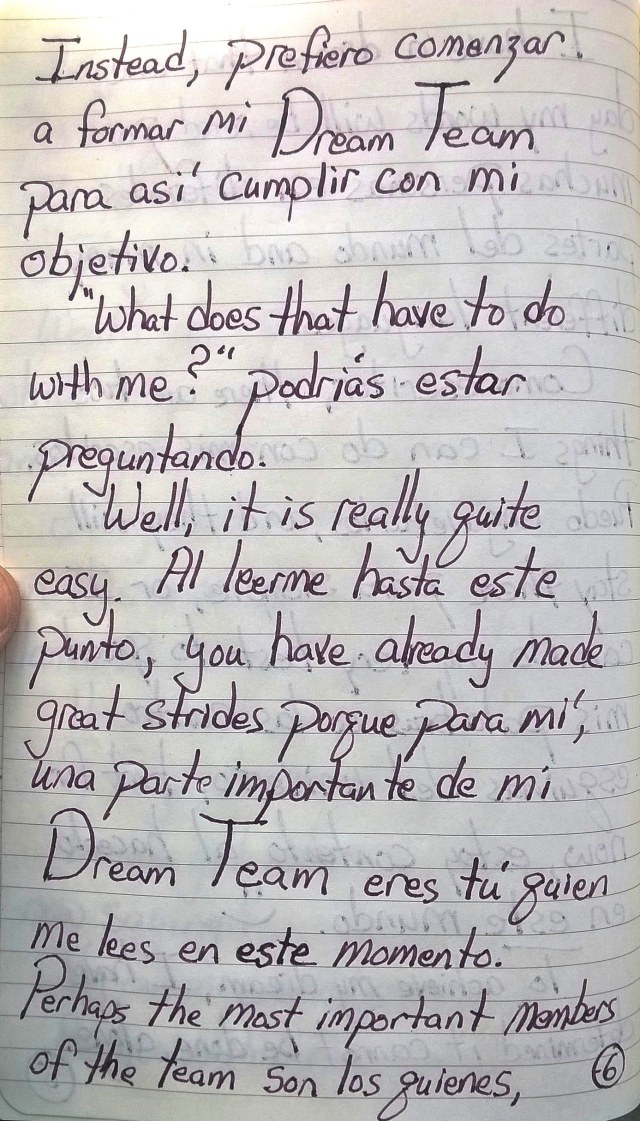 Instead, prefiero comenzar
a formar mi Dream Team
para así cumplir con mi
objetivo.
"What does that have to do
with me?" podrías estar
preguntando.
Well, it is really quite
easy. Al leerme hasta este
punto, you have already made
great strides porque para mí,
una parte importante de mi
Dream Team eres tú quien
me lees en este momento.
Perhaps the most important members
of the team son los quienes,
6